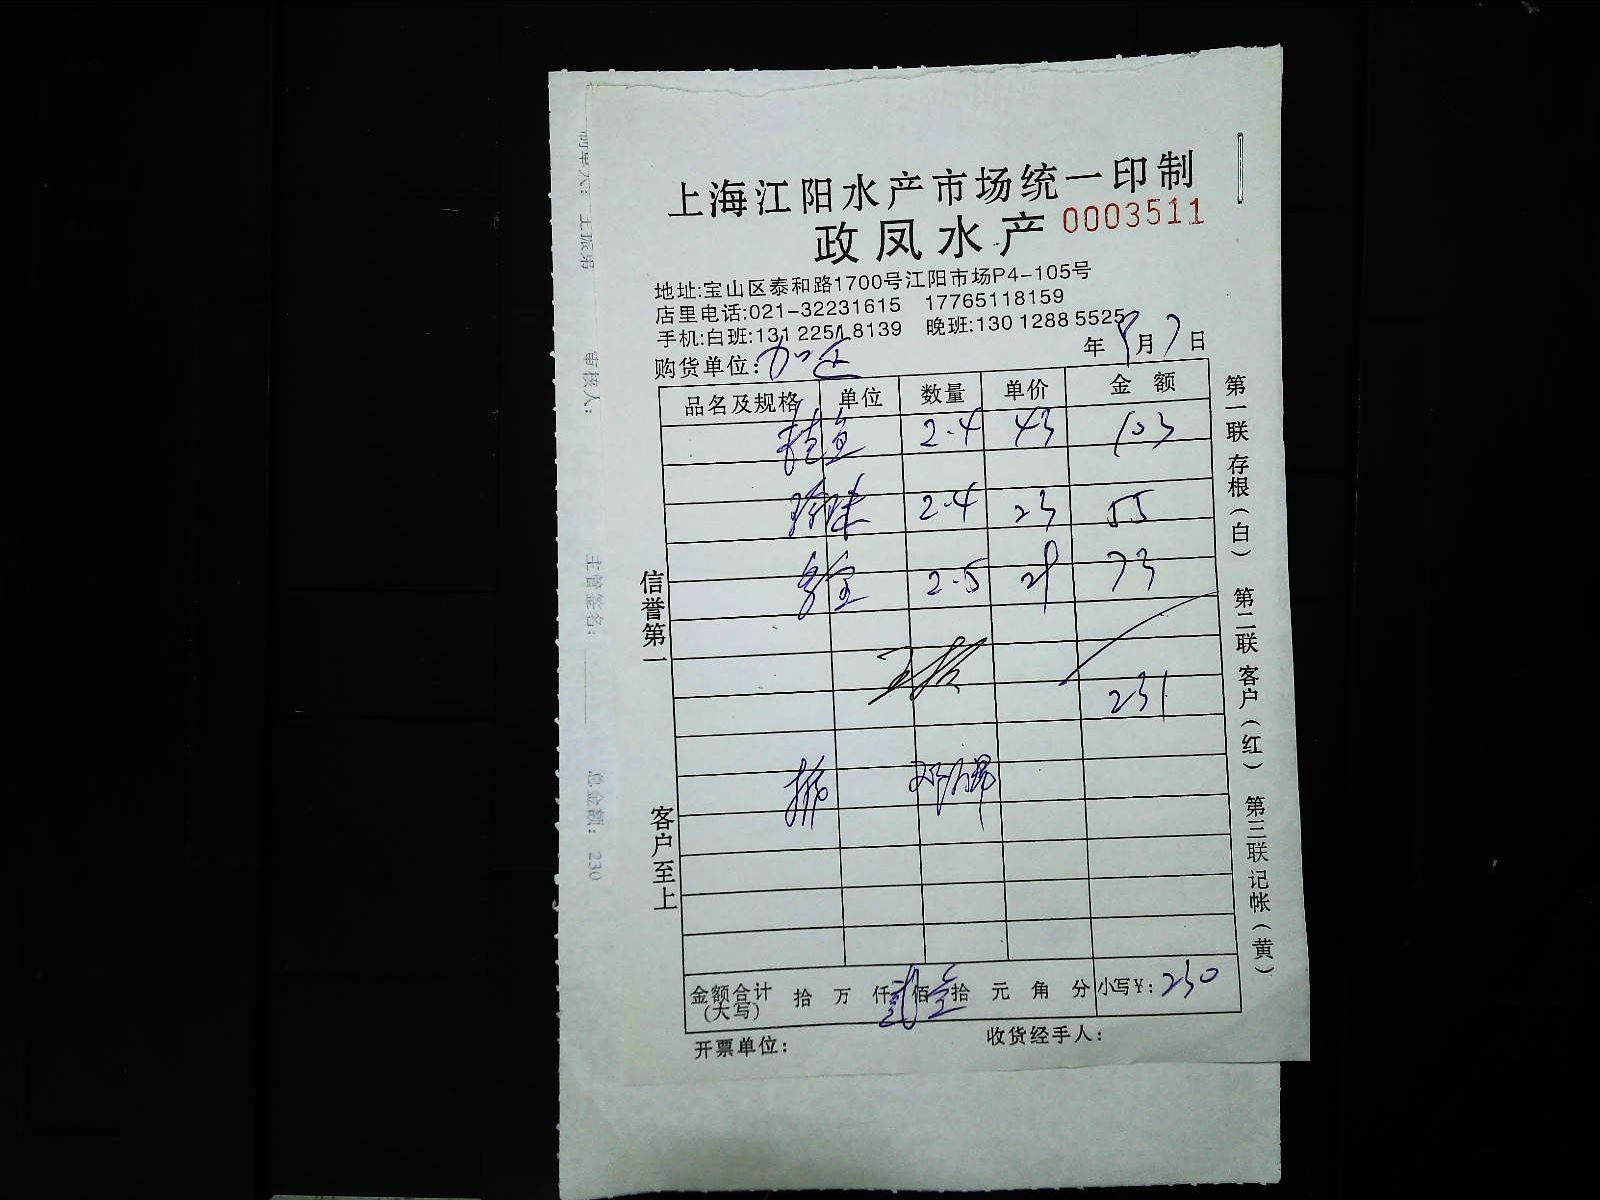 上海江阳水产市场统一印制
政凤水产 0003511
地址:宝山区泰和路1700号江阳市场P4-105号
店里电话:021-32231615 17765118159
手机:白班:131 2251 8139 晚班:130 1288 5525
购货单位: 年 8月7日
品名及规格 单位 数量 单价 金 额
桂鱼 2.4 43 103
珍珠 2.4 23 55
多宝 2.5 29 73
231
金额合计(大写) 拾 万 仟 贰佰 拾 元 角 分 小写¥:230
开票单位: 收货经手人:
信誉第一
客户至上
第一联 存根(白) 第二联 客户(红) 第三联 记帐(黄)
制单人: 王振弟
审核人:
主管签名:
总金额: 230